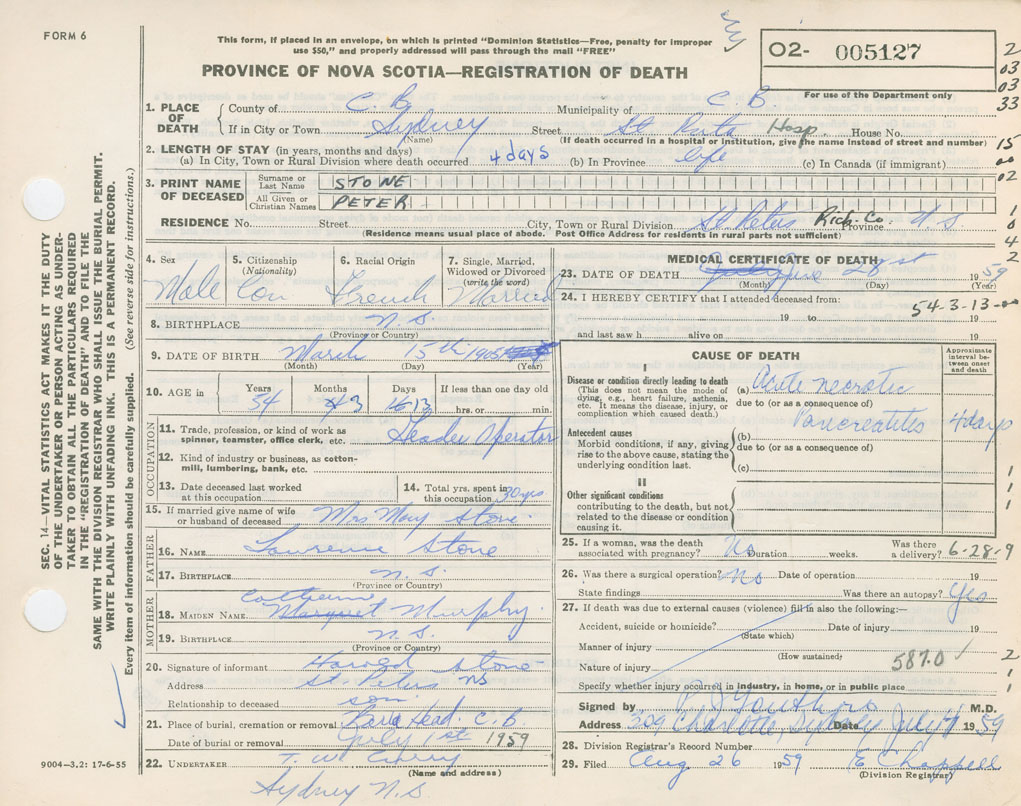 FORM 6
This form, if placed in an envelope, on which is printed "Dominion Statistics—Free, penalty for improper
use $50," and properly addressed will pass through the mail "FREE"
PROVINCE OF NOVA SCOTIA—REGISTRATION OF DEATH
O2- 005127
For use of the Department only
2
03
03
33
15
02
1
0
4
2
1. PLACE OF DEATH
County of C. B. Municipality of C. B.
If in City or Town Sydney Street St Rita Hosp House No.
(Name) (If death occurred in a hospital or institution, give the name instead of street and number)
2. LENGTH OF STAY (in years, months and days)
(a) In City, Town or Rural Division where death occurred 4 days (b) In Province life (c) In Canada (if immigrant)
3. PRINT NAME OF DECEASED
Surname or Last Name STONE
All Given or Christian Names PETER
RESIDENCE No. Street City, Town or Rural Division St Peters Rich. Co. Province N S
(Residence means usual place of abode. Post Office Address for residents in rural parts not sufficient)
4. Sex 5. Citizenship (Nationality) 6. Racial Origin 7. Single, Married, Widowed or Divorced (write the word)
Male Can French Married
8. BIRTHPLACE N. S.
(Province or Country)
9. DATE OF BIRTH March 15th 1905
(Month) (Day) (Year)
10. AGE in Years Months Days If less than one day old
54 3 13 hrs. or min.
OCCUPATION
11. Trade, profession, or kind of work as spinner, teamster, office clerk, etc. Operator
12. Kind of industry or business, as cotton-mill, lumbering, bank, etc.
13. Date deceased last worked at this occupation
14. Total yrs. spent in this occupation 30 yrs
15. If married give name of wife or husband of deceased Mrs May Stone
FATHER
16. NAME Lawrence Stone
17. BIRTHPLACE N. S.
(Province or Country)
MOTHER
18. MAIDEN NAME Catherine Margaret Murphy
19. BIRTHPLACE N. S.
(Province or Country)
20. Signature of informant Harold Stone
Address St Peters NS
Relationship to deceased son
21. Place of burial, cremation or removal Head. C. B
Date of burial or removal July 1st 1959
22. UNDERTAKER T. W. Curry
(Name and address)
Sydney N.S.
MEDICAL CERTIFICATE OF DEATH
23. DATE OF DEATH June 28 1959
(Month) (Day) (Year)
24. I HEREBY CERTIFY that I attended deceased from:
54-3-13-00
19 to 19
and last saw h alive on 19
CAUSE OF DEATH
Approximate interval between onset and death
I
Disease or condition directly leading to death
(This does not mean the mode of dying, e.g., heart failure, asthenia, etc. It means the disease, injury, or complication which caused death.)
(a) Acute necrotic
due to (or as a consequence of)
Pancreatitis 4 days
Antecedent causes
Morbid conditions, if any, giving rise to the above cause, stating the underlying condition last.
(b)
due to (or as a consequence of)
(c)
II
Other significant conditions
contributing to the death, but not related to the disease or condition causing it.
1
1
1
25. If a woman, was the death associated with pregnancy? No Duration weeks. Was there a delivery? 6-28-9
26. Was there a surgical operation? no Date of operation 19
State findings Was there an autopsy? Yes
27. If death was due to external causes (violence) fill in also the following:—
Accident, suicide or homicide? Date of injury 19
(State which)
Manner of injury
(How sustained)
587.0 ✓
2
1
1
Nature of injury
Specify whether injury occurred in industry, in home, or in public place
Signed by M.D.
Address 309 Charlotte, Sydney Date July 19 59
28. Division Registrar's Record Number
29. Filed Aug 26 1959 E Chappell
(Division Registrar)
SEC. 14—VITAL STATISTICS ACT MAKES IT THE DUTY
OF THE UNDERTAKER OR PERSON ACTING AS UNDER-
TAKER TO OBTAIN ALL THE PARTICULARS REQUIRED
IN THE "REGISTRATION OF DEATH" AND TO FILE THE
SAME WITH THE DIVISION REGISTRAR WHO SHALL ISSUE THE BURIAL PERMIT.
WRITE PLAINLY WITH UNFADING INK. THIS IS A PERMANENT RECORD.
Every item of information should be carefully supplied. (See reverse side for instructions.)
9004—3.2: 17-6-55